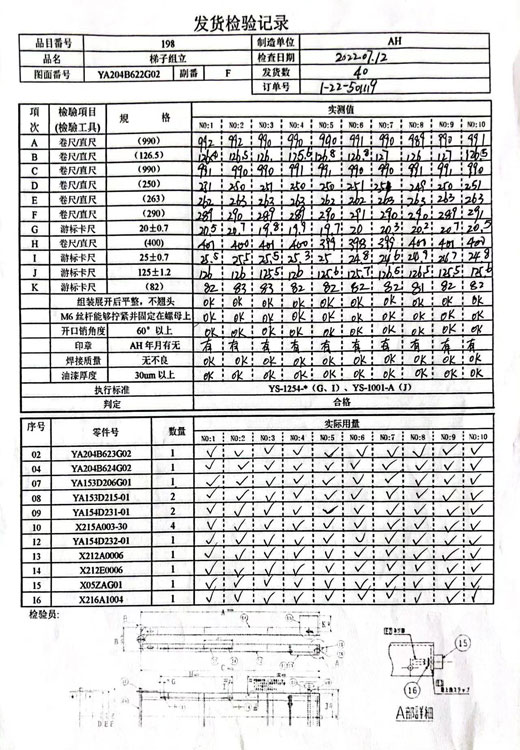 发货检验记录
品目番号 198 制造单位 AH
品名 梯子组立 检查日期 2022.07.12
图面番号 YA204B622G02 副番 F 发货数 40
订单号 1-22-501119
项次 检验项目(检验工具) 规格 实测值
NO:1 NO:2 NO:3 NO:4 NO:5 NO:6 NO:7 NO:8 NO:9 NO:10
A 卷尺/直尺 (990) 992 992 990 990 990 991 990 989 990 991
B 卷尺/直尺 (126.5) 126.5 126. 126.8 126.8 127 126 127 126.5
C 卷尺/直尺 (990) 991 990 990 991 991, 990 990 991, 990
D 卷尺/直尺 (250) 251 250 251 250 250 251 250 251
E 卷尺/直尺 (263) 262 263 263 262 263 262 263 262 263 263
F 卷尺/直尺 (290) 289 290 289 289 290 291 290 290 289 291
G 游标卡尺 20±0.7 20.5 20.7 19.8 19.9 19.7 20 20.3 20.2 20.7 20.5
H 卷尺/直尺 (400) 401 400 401 400 399 398 399 401 401 400
I 游标卡尺 25±0.7 25.5 25.5 25.5 25.3 25 24.8 24.6 24.9 24.7 24.8
J 游标卡尺 125±1.2 126 126 125.5 126 125.6 125.7 126.5 126.5 125.5 125.6
K 游标卡尺 (82) 82 83 82 82 82 82 82 81 82 82
组装展开后平整，不翘头 OK OK OK OK OK OK OK OK OK OK
M6 丝杆能够拧紧并固定在螺母上 OK OK OK OK OK OK OK OK OK OK
开口销角度 60°以上 OK OK OK OK OK OK OK OK OK OK
印章 AH 年月有无 有 有 有 有 有 有 有 有 有 有
焊接质量 无不良 OK OK OK OK OK OK OK OK OK OK
油漆厚度 30um 以上 OK OK OK OK OK OK OK OK OK OK
执行标准 YS-1254-*（G、I）、YS-1001-A（J）
判定 合格
序号 零件号 数量 实际用量
NO:1 NO:2 NO:3 NO:4 NO:5 NO:6 NO:7 NO:8 NO:9 NO:10
02 YA204B623G02 1 ✓ ✓ ✓ ✓ ✓ ✓ ✓ ✓ ✓ ✓
04 YA204B624G02 1 ✓ ✓ ✓ ✓ ✓ ✓ ✓ ✓ ✓ ✓
07 YA153D206G01 1 ✓ ✓ ✓ ✓ ✓ ✓ ✓ ✓ ✓ ✓
08 YA153D215-01 2 ✓ ✓ ✓ ✓ ✓ ✓ ✓ ✓ ✓ ✓
09 YA154D231-01 2 ✓ ✓ ✓ ✓ ✓ ✓ ✓ ✓ ✓ ✓
10 X215A003-30 4 ✓ ✓ ✓ ✓ ✓ ✓ ✓ ✓ ✓ ✓
12 YA154D232-01 1 ✓ ✓ ✓ ✓ ✓ ✓ ✓ ✓ ✓ ✓
13 X212A0006 1 ✓ ✓ ✓ ✓ ✓ ✓ ✓ ✓ ✓ ✓
14 X212E0006 1 ✓ ✓ ✓ ✓ ✓ ✓ ✓ ✓ ✓ ✓
15 X05ZAG01 1 ✓ ✓ ✓ ✓ ✓ ✓ ✓ ✓ ✓ ✓
16 X216A1004 1 ✓ ✓ ✓ ✓ ✓ ✓ ✓ ✓ ✓ ✓
检验员:
A
K
B
15
H
G
16
D E F
A部詳細図